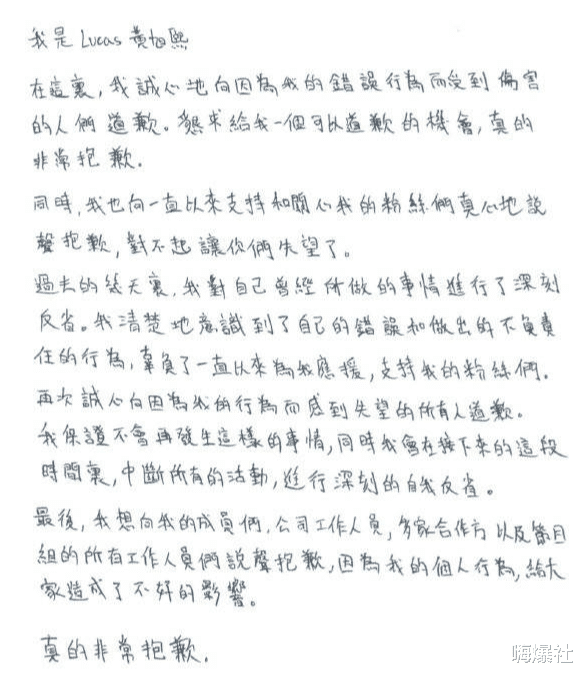 我是 Lucas 黃旭熙
在這裏，我誠心地向因為我的錯誤行為而受到傷害
的人們道歉。懇求給我一個可以道歉的機會，真的
非常抱歉.
同時，我也向一直以來支持和關心我的粉絲們真心地說
聲抱歉，對不起讓你們失望了。
過去的幾天裏，我對自己曾經所做的事情進行了深刻
反省。我清楚地意識到了自己的錯誤和做出的不負責
任的行為，辜負了一直以來為我應援，支持我的粉絲們.
再次誠心向因為我的行為而感到失望的所有人道歉.
我保證不會再發生這樣的事情，同時我會在接下來的這段
時間裏，中斷所有的活動，進行深刻的自我反省。
最後，我想向我的成員們，公司工作人員，多家合作方以及節目
組的所有工作人員們說聲抱歉，因為我的個人行為，給大
家造成了不好的影響。
真的非常抱歉.
嗨爆社